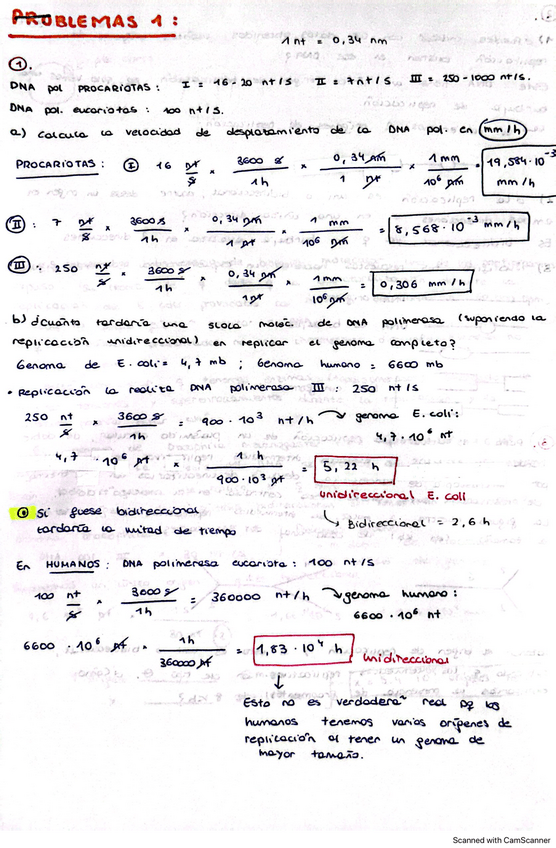 PROBLEMAS 1:
1 nt = 0,34 nm
①.
DNA pol PROCARIOTAS: I = 16-20 nt/s II = 7nt/s III = 250-1000 nt/s.
DNA pol. eucariotas: 100 nt/s.
a) Calcula la velocidad de desplatamiento de la DNA pol. en mm/h
PROCARIOTAS: Ⓘ 16 nt/s × 3600 s/1h × 0,34 nm/1 nt × 1mm/10⁶ nm = 19,584·10⁻³ mm/h
Ⅱ: 7 nt/s × 3600s/1h × 0,34 nm/1 nt × mm/10⁶ nm = 8,568·10⁻³ mm/h
Ⅲ: 250 nt/s × 3600 s/1h × 0,34 nm/1nt × 1mm/10⁶nm = 0,306 mm/h
b) ¿Cuánto tardaría una sloca moléc. de DNA polimerasa (suponiendo la
replicación unidireccional) en replicar el genoma completo?
Genoma de E. coli = 4,7 mb ; Genoma humano = 6600 mb
• Replicación la realita DNA polimerasa III: 250 nt/s
250 nt/s × 3600 s/1h = 900·10³ nt/h → genoma E. coli:
4,7·10⁶ nt
4,7·10⁶ nt × 1 h/900·10³ nt = 5,22 h
unidireccional E. coli
↳ Bidireccional = 2,6 h
Si fuese bidireccional
tardaría la mitad de tiempo
En HUMANOS: DNA polimerasa eucariota: 100 nt/s
100 nt/s × 3600 s/1h = 360000 nt/h → genoma humano:
6600·10⁶ nt
6600·10⁶ nt × 1h/360000 nt = 1,83·10⁴ h
unidireccional
↓
Esto no es verdadera real pq los
humanos tenemos varios orígenes de
replicación al tener un genoma de
mayor tamaño.
Scanned with CamScanner